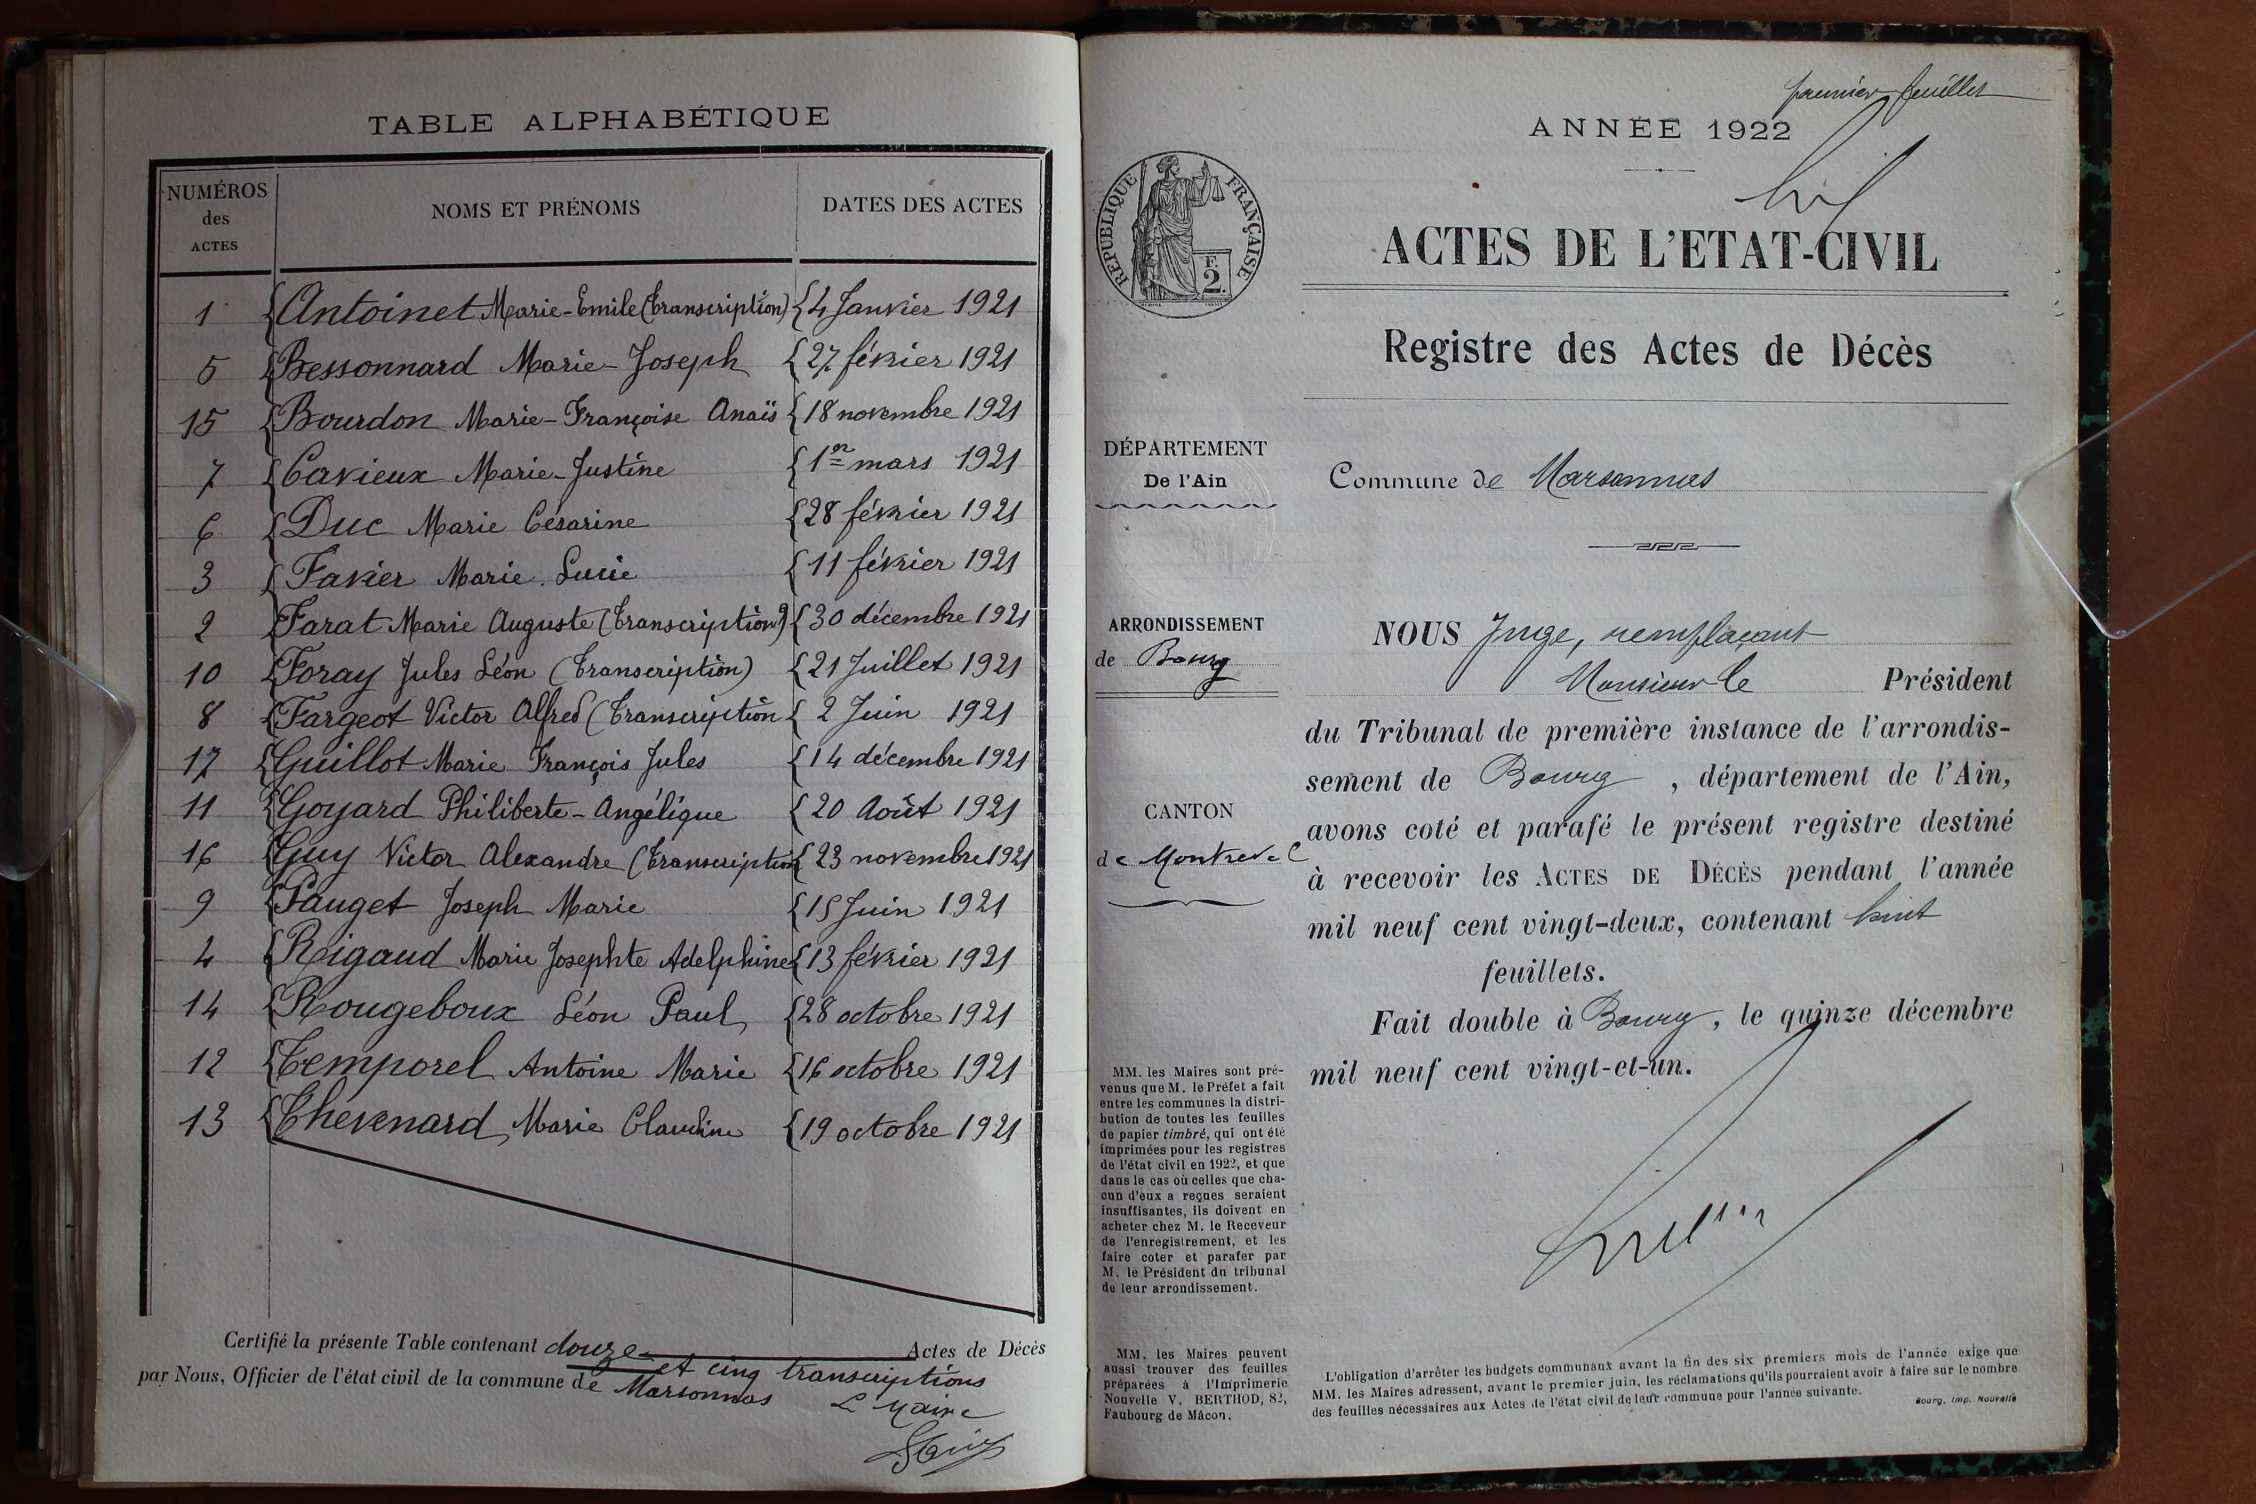 TABLE ALPHABÉTIQUE
NUMÉROS
des
ACTES
NOMS ET PRÉNOMS
DATES DES ACTES
1 { Antoinet Marie-Emile (Transcription) { 4 Janvier 1921
5 { Bessonnard Marie-Joseph { 27 février 1921
15 { Bourdon Marie-Françoise Anaïs { 18 novembre 1921
7 { Cavieux Marie-Justine { 1er mars 1921
6 { Duc Marie Césarine { 28 février 1921
3 { Favier Marie Lucie { 11 février 1921
2 { Farat Marie Auguste (Transcription) { 30 décembre 1921
10 { Foray Jules Léon (Transcription) { 21 Juillet 1921
8 { Fargeot Victor Alfred (Transcription { 2 Juin 1921
17 { Guillot Marie François Jules { 14 décembre 1921
11 { Goyard Philiberte-Angélique { 20 Août 1921
16 { Guy Victor Alexandre (Transcription { 23 novembre 1921
9 { Pauget Joseph Marie { 15 Juin 1921
4 { Rigaud Marie Josephte Adelphine { 13 février 1921
14 { Rougeboux Léon Paul { 28 octobre 1921
12 { Temporel Antoine Marie { 16 octobre 1921
13 { Thevenard Marie Claudine { 19 octobre 1921
Certifié la présente Table contenant douze Actes de Décès
et cinq transcriptions
par Nous, Officier de l'état civil de la commune de Marsonnas
Le Maire
premier feuillet
ANNÉE 1922
RÉPUBLIQUE FRANÇAISE
F.
2.
ACTES DE L'ETAT-CIVIL
Registre des Actes de Décès
DÉPARTEMENT
De l'Ain
Commune de Marsonnas
ARRONDISSEMENT
de Bourg
CANTON
de Montrevel
NOUS Juge, remplaçant
Monsieur le Président
du Tribunal de première instance de l'arrondis-
sement de Bourg, département de l'Ain,
avons coté et parafé le présent registre destiné
à recevoir les ACTES DE DÉCÈS pendant l'année
mil neuf cent vingt-deux, contenant huit
feuillets.
Fait double à Bourg, le quinze décembre
mil neuf cent vingt-et-un.
MM. les Maires sont pré-
venus que M. le Préfet a fait
entre les communes la distri-
bution de toutes les feuilles
de papier timbré, qui ont été
imprimées pour les registres
de l'état civil en 1922, et que
dans le cas où celles que cha-
cun d'eux a reçues seraient
insuffisantes, ils doivent en
acheter chez M. le Receveur
de l'enregistrement, et les
faire coter et parafer par
M. le Président du tribunal
de leur arrondissement.
MM. les Maires peuvent
aussi trouver des feuilles
préparées à l'Imprimerie
Nouvelle V. BERTHOD, 82,
Faubourg de Mâcon.
L'obligation d'arrêter les budgets communaux avant la fin des six premiers mois de l'année exige que
MM. les Maires adressent, avant le premier juin, les réclamations qu'ils pourraient avoir à faire sur le nombre
des feuilles nécessaires aux Actes de l'état civil de leur commune pour l'année suivante.
Bourg, Imp. Nouvelle